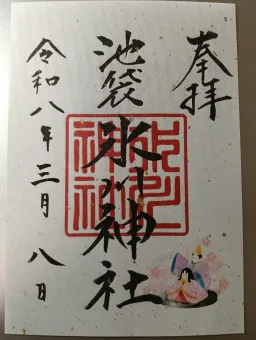 奉拝
池袋氷川神社
令和八年三月八日